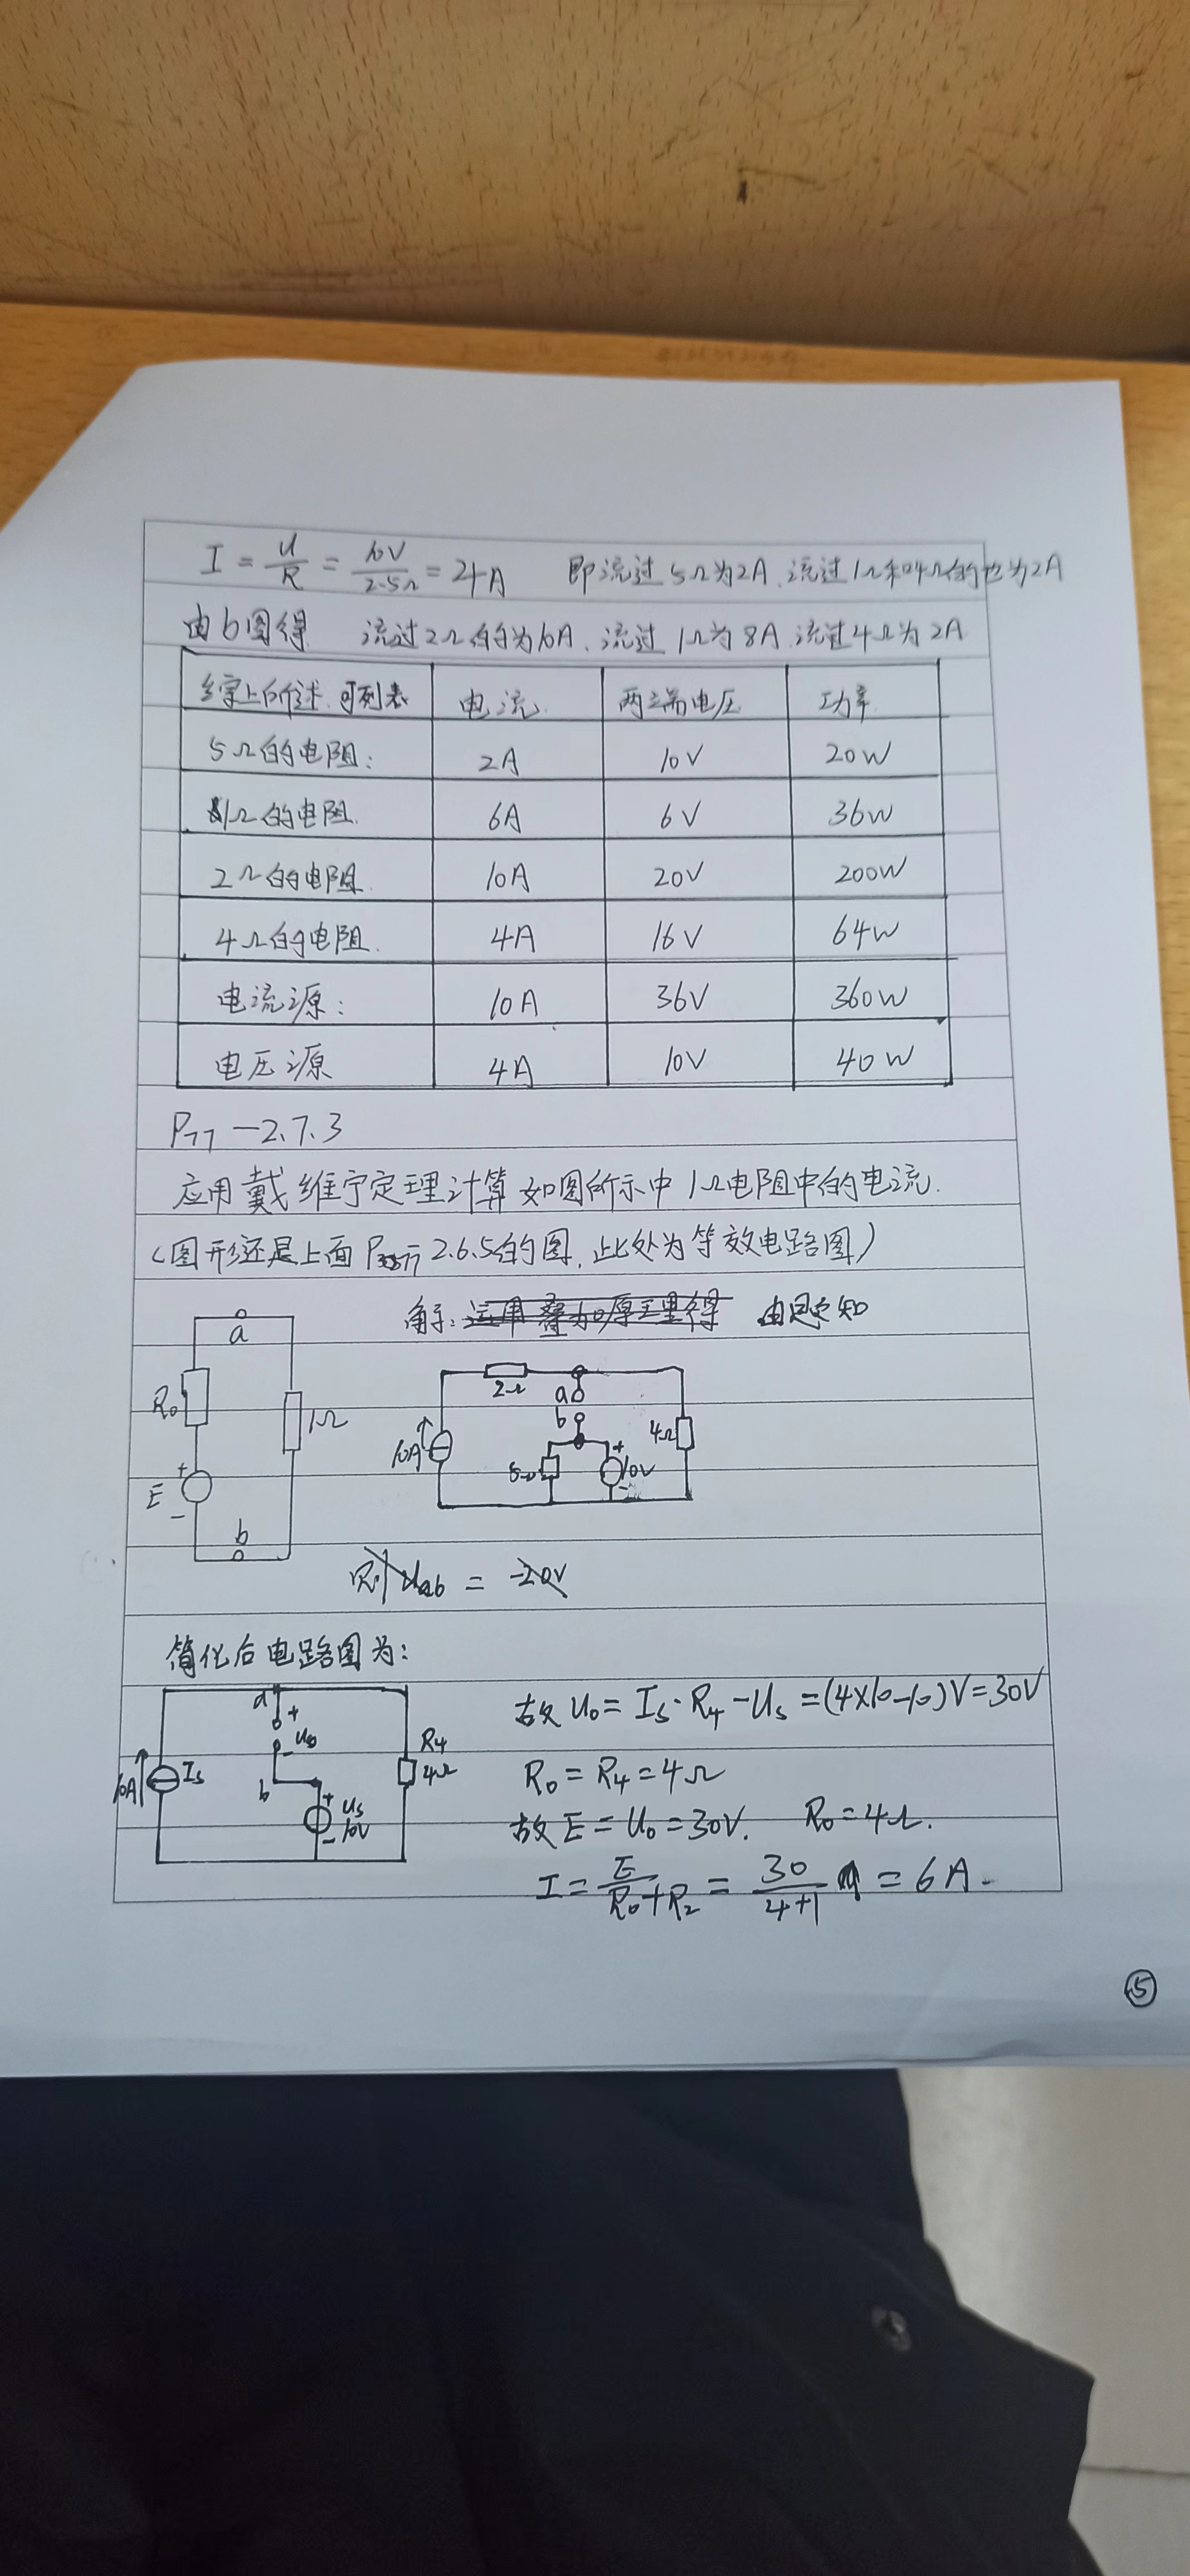 I = U/R = 10V/2.5Ω = 4A 即流过5Ω为2A.流过1Ω和4Ω的也为2A
由b图得 流过2Ω的为10A.流过1Ω为8A.流过4Ω为2A
综上所述.可列表 电流 两端电压 功率
5Ω的电阻: 2A 10V 20W
1Ω的电阻 6A 6V 36W
2Ω的电阻 10A 20V 200W
4Ω的电阻. 4A 16V 64W
电流源: 10A 36V 360W
电压源 4A 10V 40W
P77-2.7.3
应用戴维宁定理计算如图所示中1Ω电阻中的电流.
(图形还是上面 2.6.5的图,此处为等效电路图)
解:运用叠加原理得 由题知
a
R0 1Ω
E + -
b
2Ω a
b
10A 5Ω + 10V - 4Ω
则Uab = -20V
简化后电路图为:
a + U0 - b
10A Is R4 4Ω
+ Us 10V -
故U0=Is·R4-Us=(4×10-10)V=30V
R0=R4=4Ω
故E=U0=30V. R0=4Ω.
I = E/(R0+R2) = 30/(4+1) A = 6A.
5